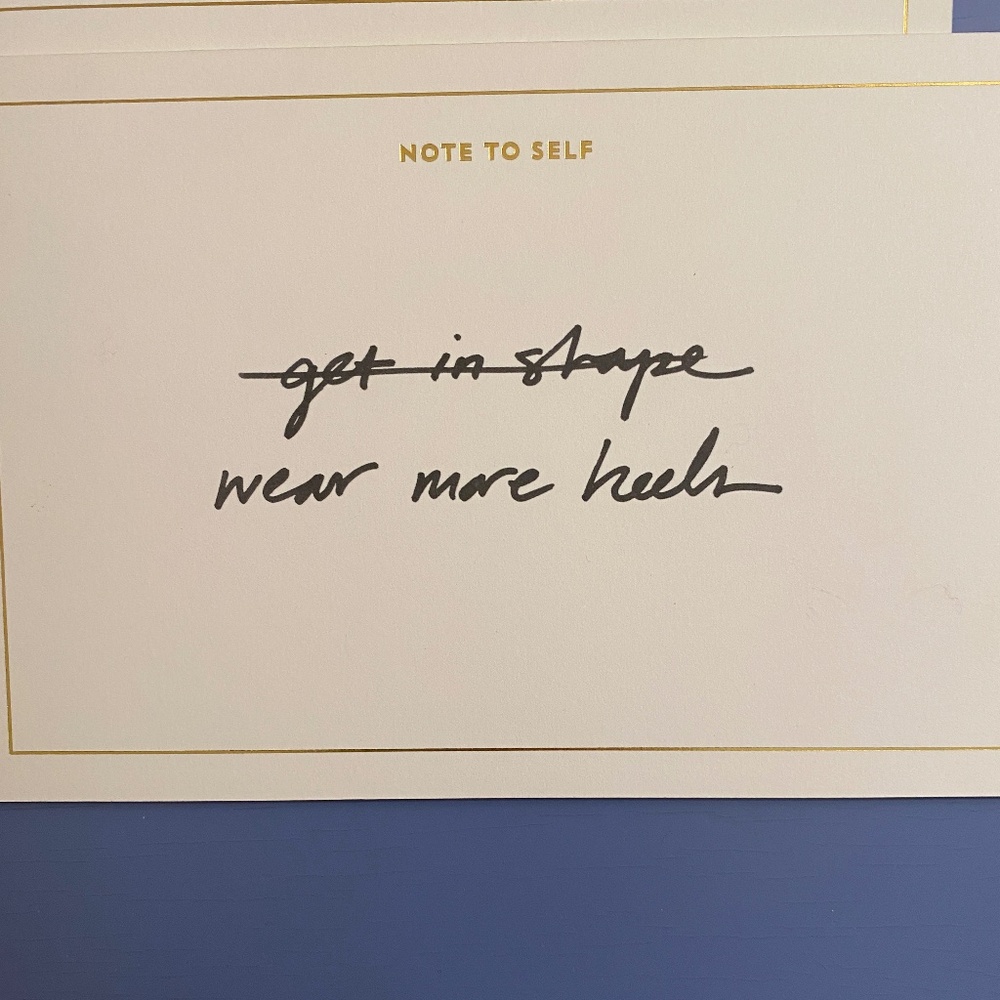 NOTE TO SELF
get in shape
wear more heels